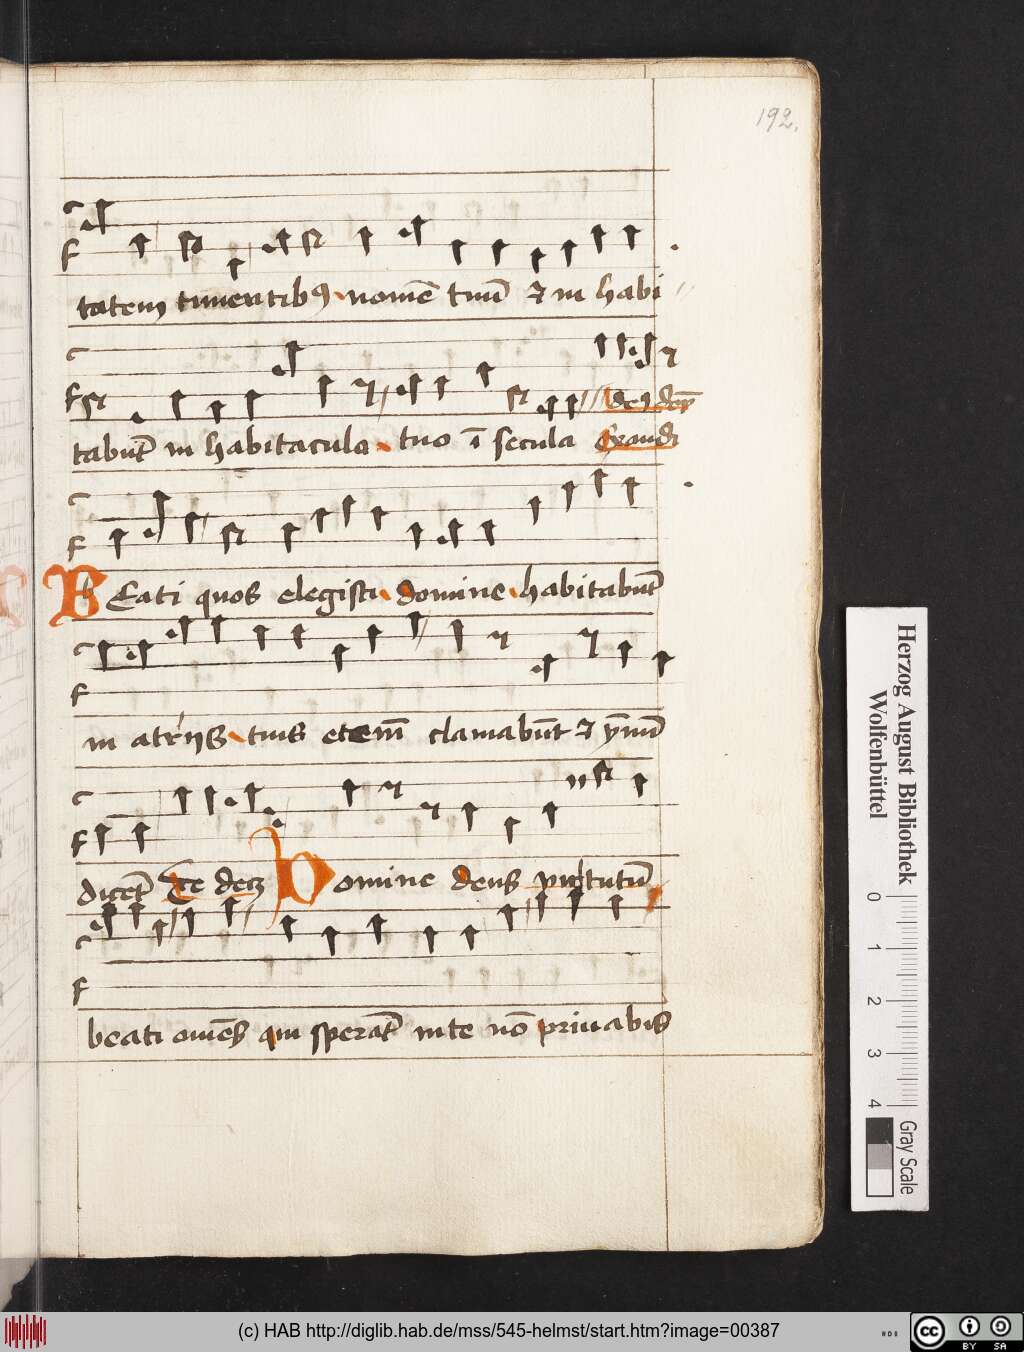 192.
tatem timentibꝰ nomē tuū ⁊ in habi
deꝰ deꝰ
tabūt in habitacula tuo ī secula Exaudi
BEati quos elegisti domine habitabūt
in atriis tuis etem̄ clamabūt ⁊ ymnū
dicēt Te decꝫ Domine deus virtutū
beati omēs qui sperāt in te nō priuabis
Herzog August Bibliothek
Wolfenbüttel
0 1 2 3 4
Gray Scale
(c) HAB http://diglib.hab.de/mss/545-helmst/start.htm?image=00387
cc BY SA